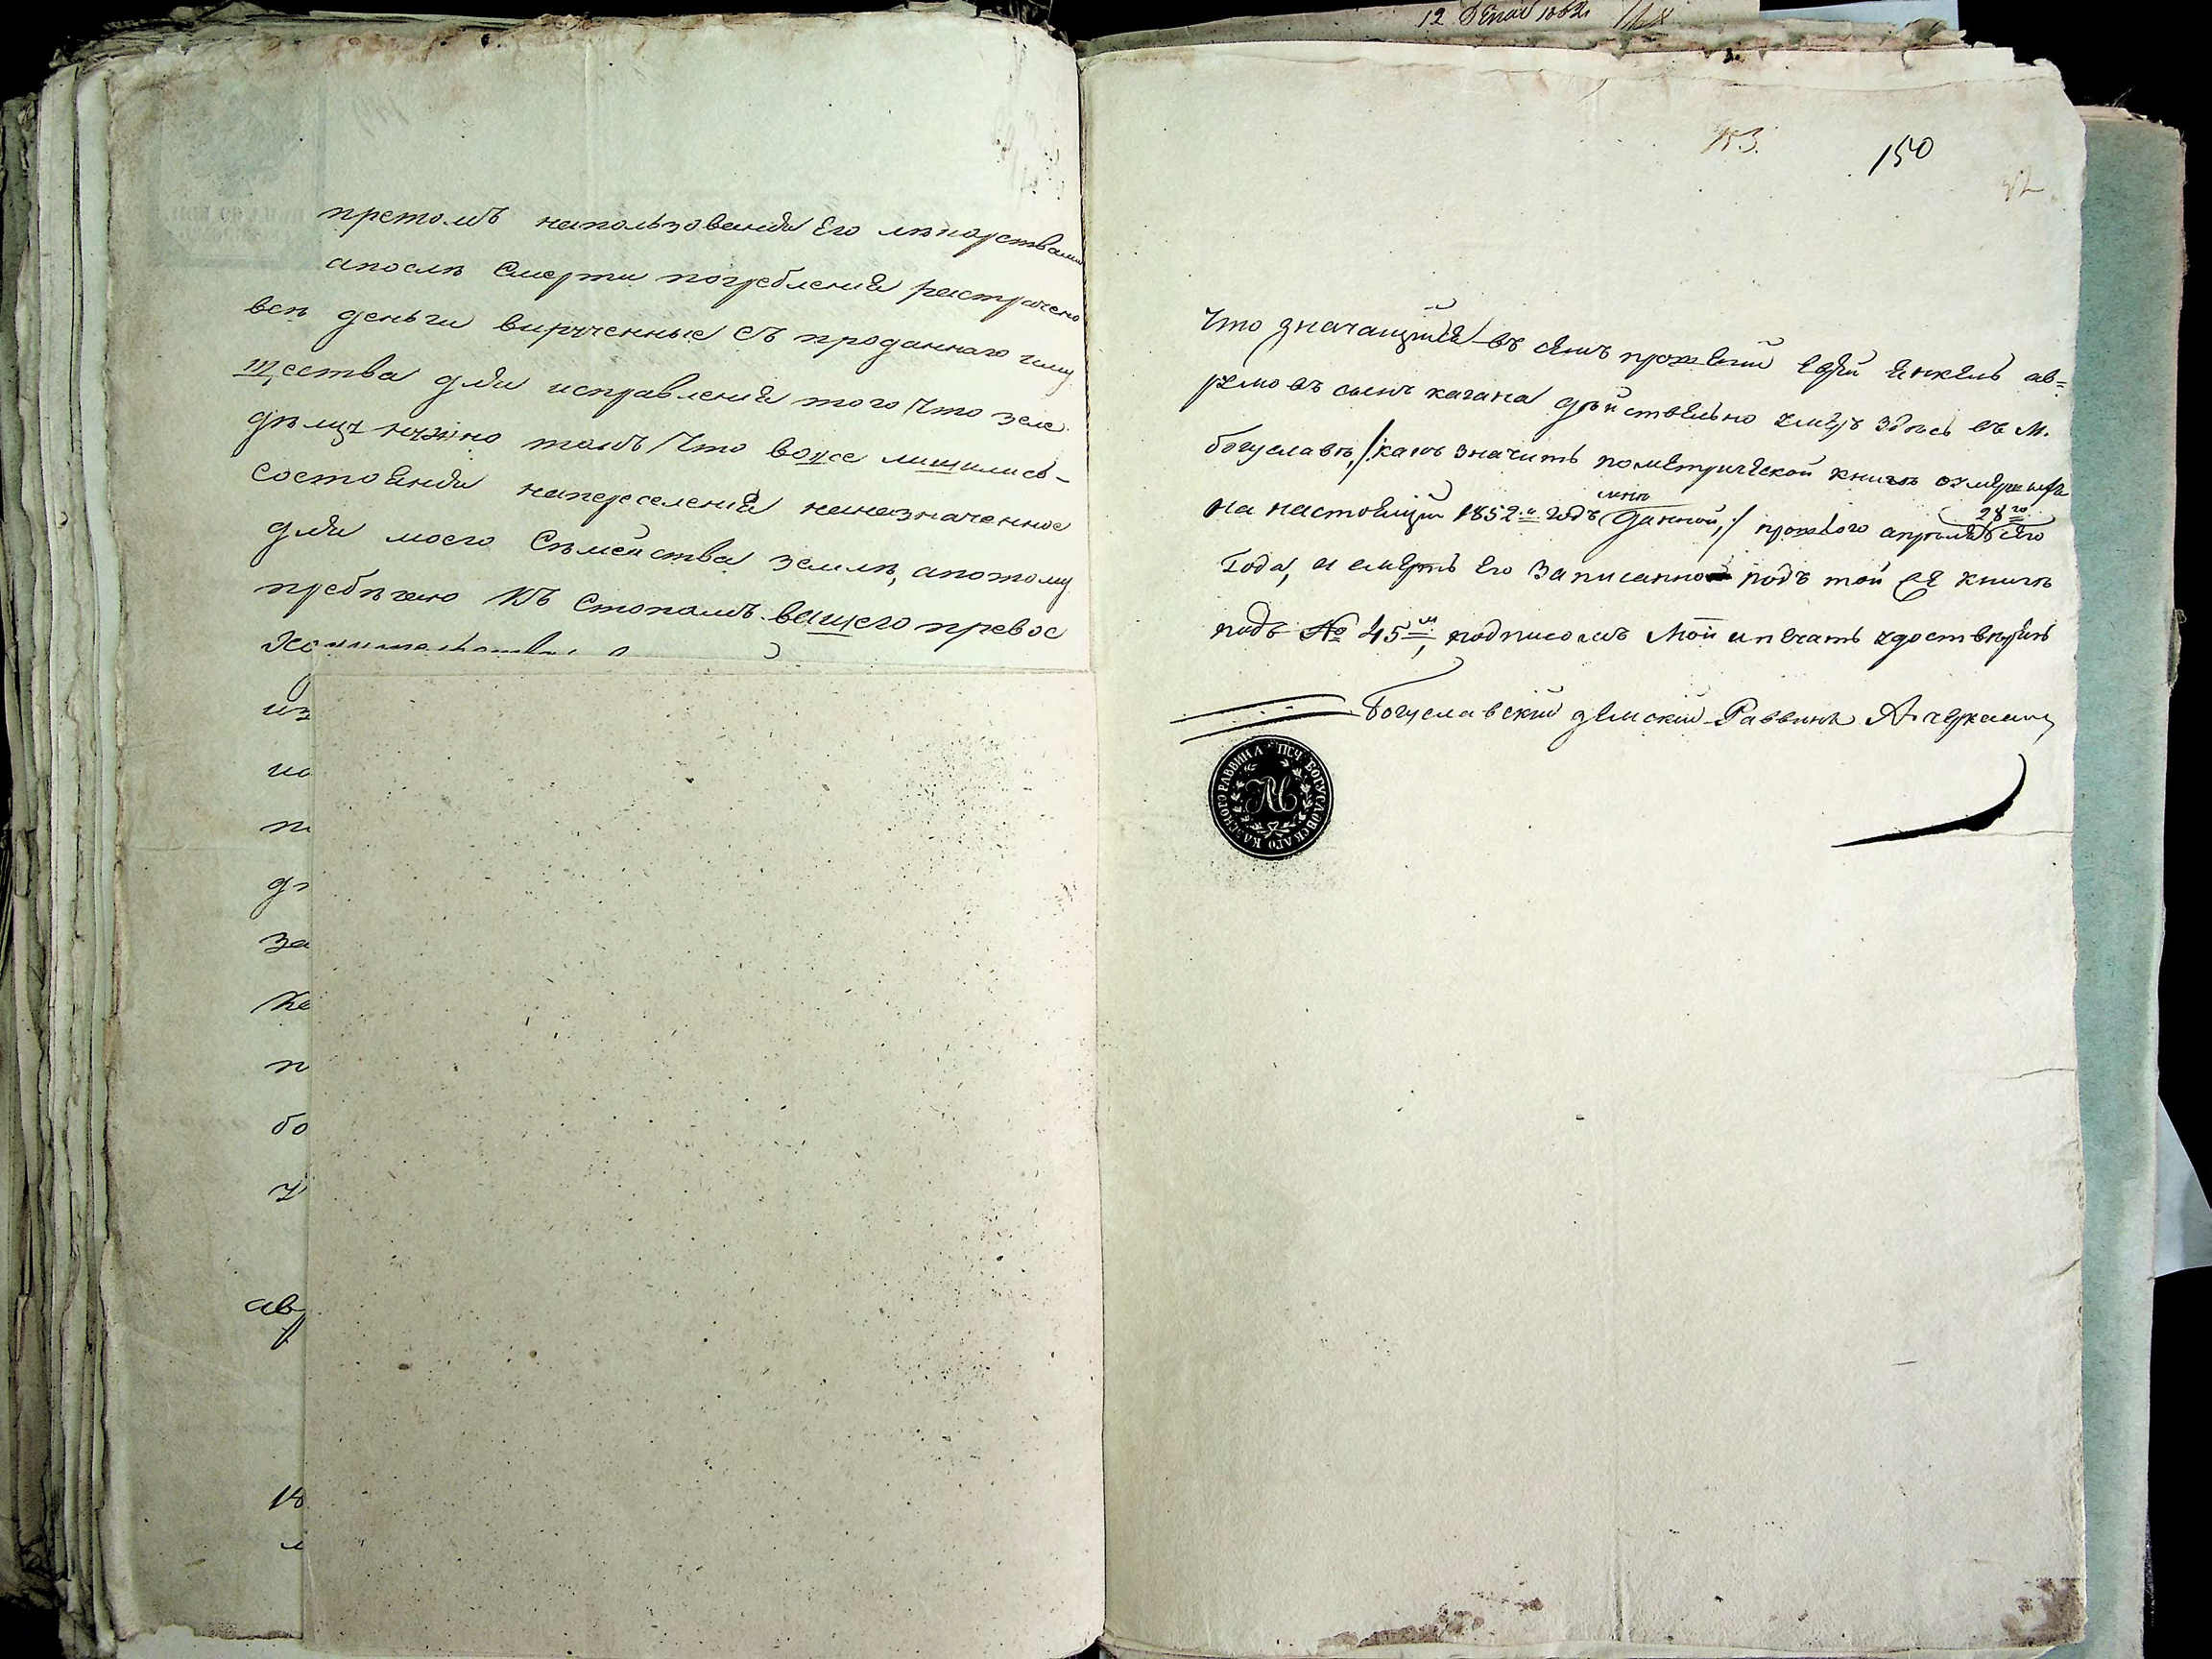 12 1852
притомъ на пользованія Его лѣкарствами
апослѣ Смерти погребленія растрачено
всѣ деньги вирученные съ проданнаго иму
щества для исправленія того что земле
дѣлцу нужно такъ что вовсе лишились
состоянія на переселенія на назначенное
для моего Съмейства землѣ, апотому
прибѣгаю Къ Стопамъ вашего превос
из
по
за
бо
ав
153.
150
Что значащийся въ семъ прошеніи Еврей Янкель ав=
румовъ сынъ кагана действтельно умеръ здѣсь въ М.
богуславѣ, /: какъ значить пометрической книгѣ о умершихъ
на настоящій 1852й годъ мнѣ данной, :/ прошлого апрѣля 28го сего
Года, и смерть его записанно подъ той же книгѣ
подъ № 45м, подписомъ Мой и печать удоствѣрить
Богуславский зѣмский Раввинъ А. черкаский
ПЕЧ. БОГУСЛОВСКАГО КАЗНОГО РАВВИНА